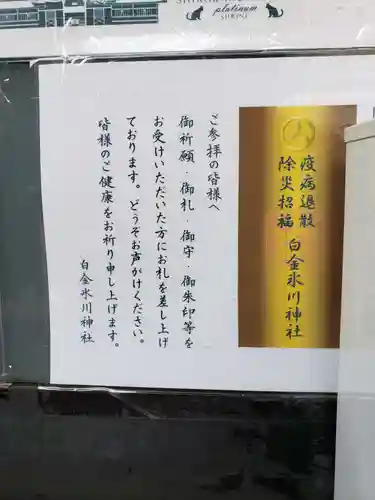 platinum
SHRINE
疫病退散
除災招福
白金氷川神社
ご参拝の皆様へ
御祈願・御札・御守・御朱印等を
お受けいただいた方にお札を差し上げ
ております。どうぞお声がけください。
皆様のご健康をお祈り申し上げます。
白金氷川神社